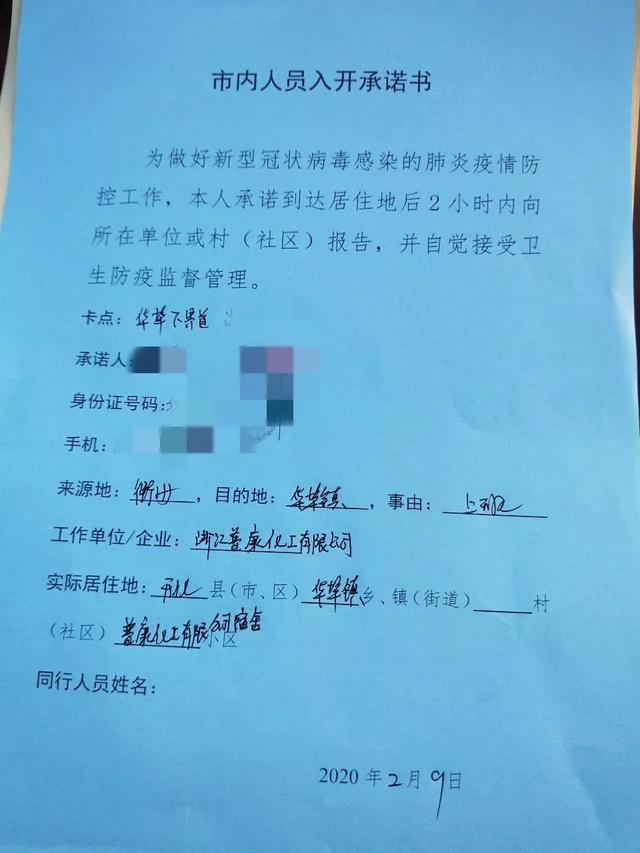 市内人员入开承诺书
为做好新型冠状病毒感染的肺炎疫情防
控工作，本人承诺到达居住地后2小时内向
所在单位或村（社区）报告，并自觉接受卫
生防疫监督管理。
卡点：华埠下界首
承诺人：
身份证号码：
手机：
来源地：衢州，目的地：华埠镇，事由：上班
工作单位/企业：浙江普康化工有限公司
实际居住地：开化县（市、区）华埠镇乡、镇（街道）______村
（社区）普康化工有限公司宿舍小区
同行人员姓名：
2020年2月9日